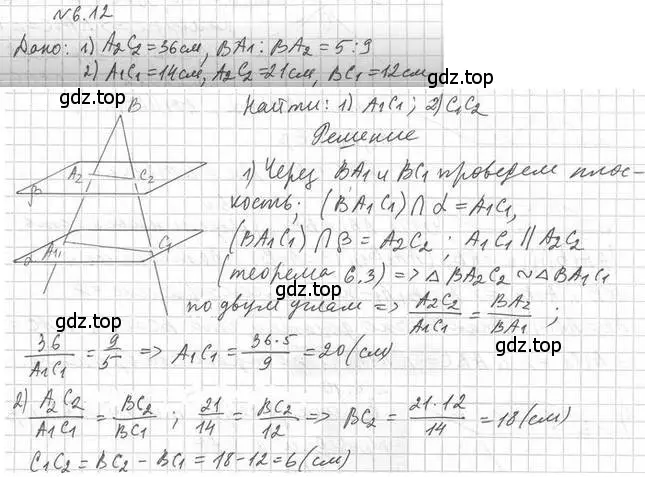 №6.12
Дано: 1) A₂C₂=36см, BA₁:BA₂=5:9
2) A₁C₁=14см, A₂C₂=21см, BC₁=12см
gdz.top
gdz.top
Найти: 1) A₁C₁; 2) C₁C₂
B
Решение
A₂ C₂
β
1) Через BA₁ и BC₁ проведем плос-
кость; (BA₁C₁)∩α=A₁C₁,
A₁ C₁
α
(BA₁C₁)∩β=A₂C₂; A₁C₁∥A₂C₂
(теорема 6.3) => △BA₂C₂ ~ △BA₁C₁
gdz.top
gdz.top
по двум углам => A₂C₂/A₁C₁ = BA₂/BA₁;
36/A₁C₁ = 9/5 => A₁C₁ = 36·5/9 = 20(см)
gdz.top
2) A₂C₂/A₁C₁ = BC₂/BC₁; 21/14 = BC₂/12 => BC₂ = 21·12/14 = 18(см)
C₁C₂ = BC₂ - BC₁ = 18-12 = 6(см)
gdz.top
gdz.top